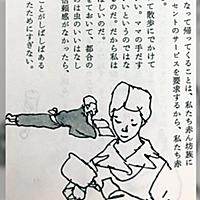 なって帰ってくることは、私たち赤ん坊族に
セントのサービスを要求するから、私たち赤
て散歩にでかけて
いというのではな
い、ママの手だす
のだ。だから私は
しいのだ。
ておいて、都合の
のは虫のいいはなし
信頼感がなかったら、
ことがしばしばある
ためにすぎない。